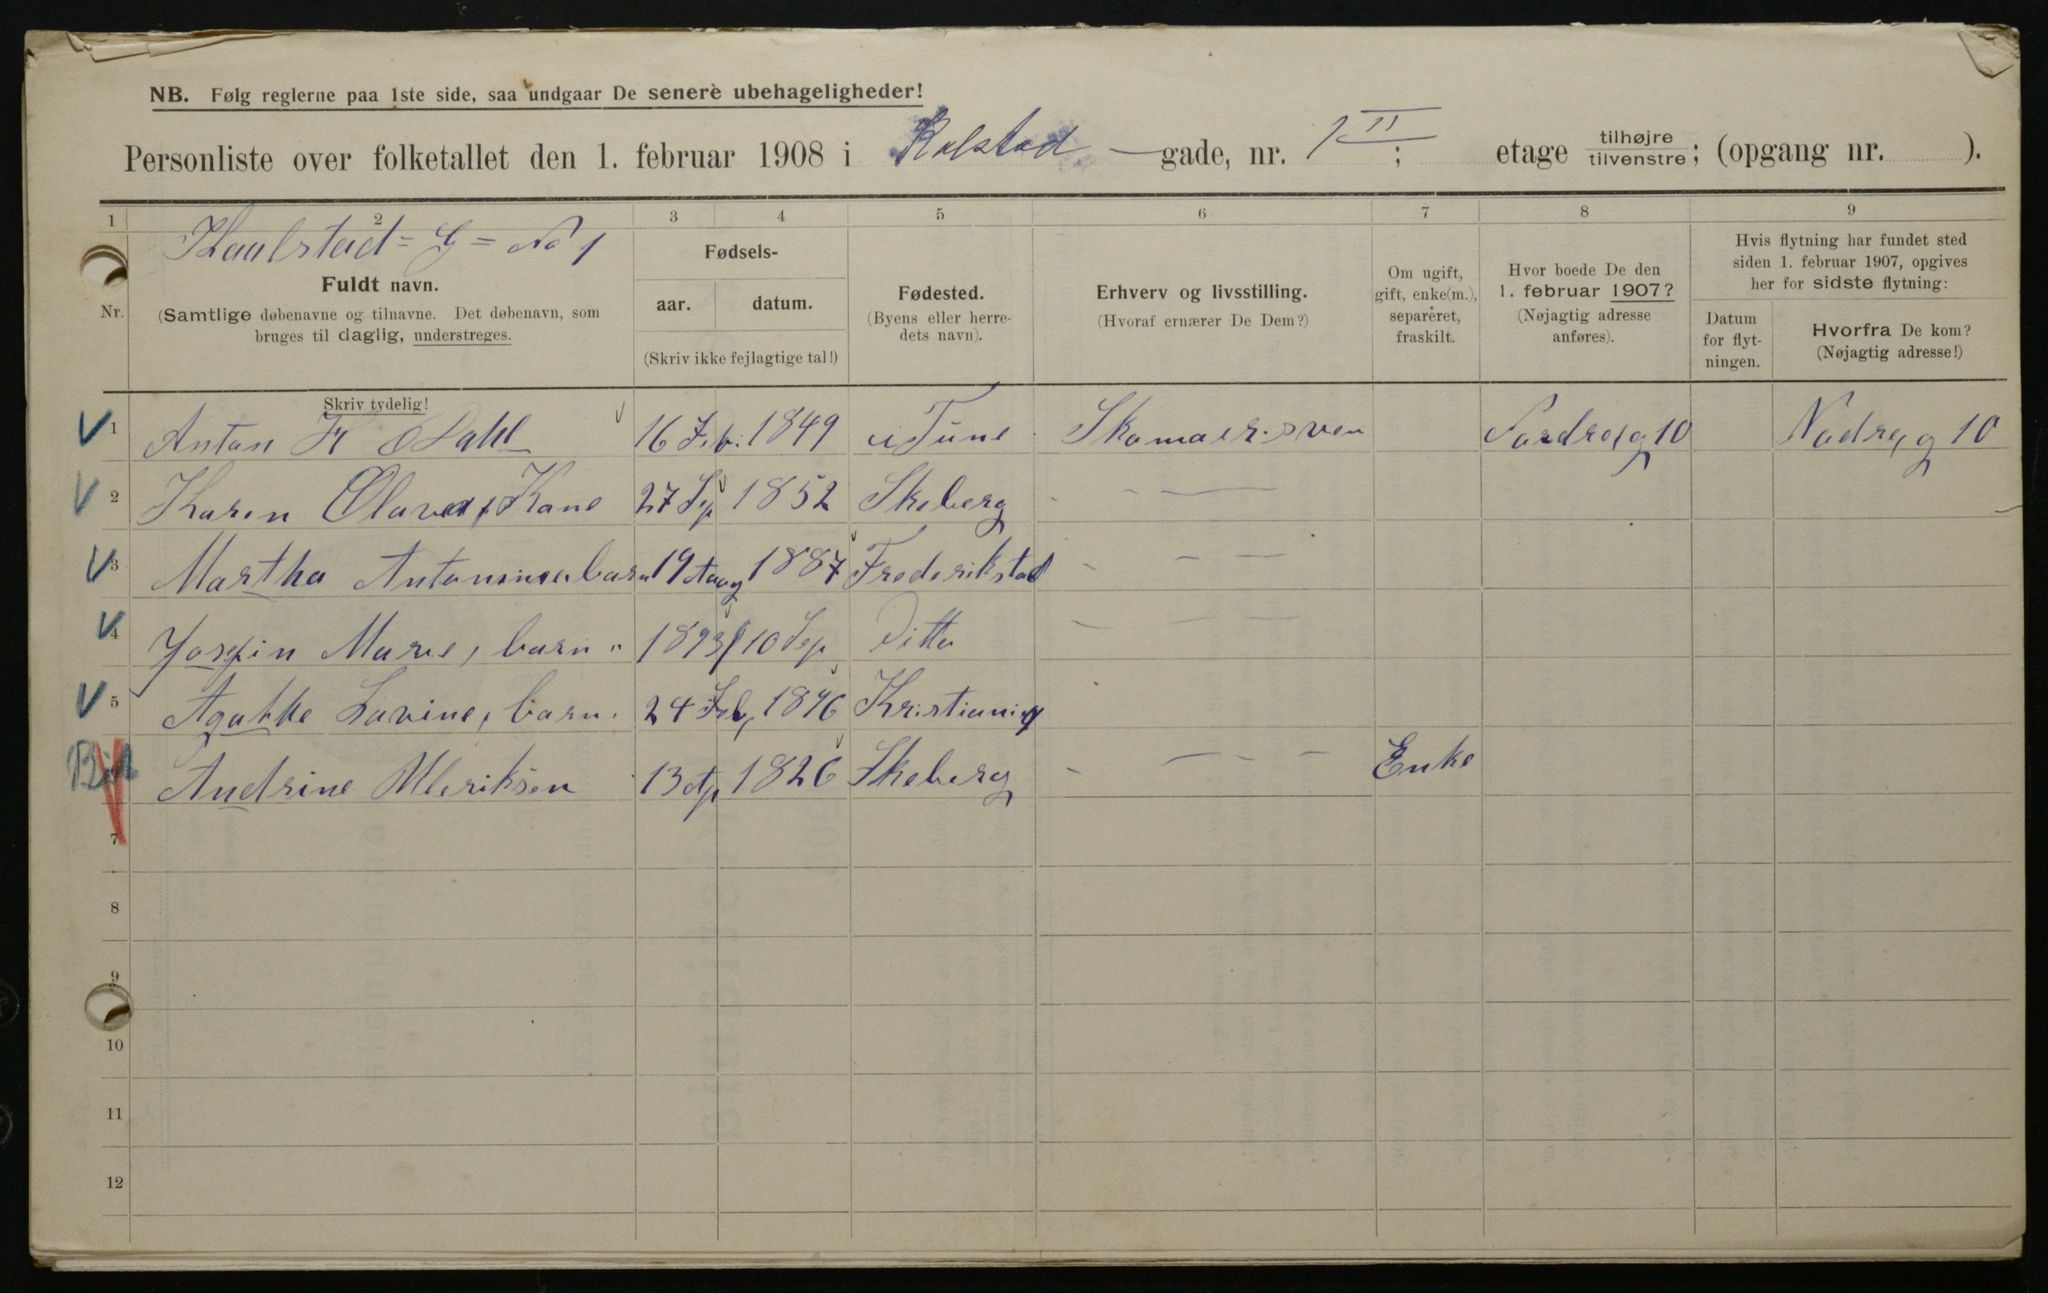 NB. Følg reglerne paa 1ste side, saa undgaar De senere ubehageligheder!
Personliste over folketallet den 1. februar 1908 i Kalstad — gade, nr. 1 II ; etage tilhøjre tilvenstre; (opgang nr. ).
1 2 3 4 5 6 7 8 9
Kaalstad = G = No 1
Nr.
Fuldt navn.
(Samtlige døbenavne og tilnavne. Det døbenavn, som
bruges til daglig, understreges.
Skriv tydelig!
Fødsels-
aar. datum.
(Skriv ikke fejlagtige tal!)
Fødested.
(Byens eller herre-
dets navn).
Erhverv og livsstilling.
(Hvoraf ernærer De Dem?)
Om ugift,
gift, enke(m.),
separeret,
fraskilt.
Hvor boede De den
1. februar 1907?
(Nøjagtig adresse
anføres).
Hvis flytning har fundet sted
siden 1. februar 1907, opgives
her for sidste flytning:
Datum
for flyt-
ningen.
Hvorfra De kom?
(Nøjagtig adresse!)
1 Anton H Dahl 16 Feb. 1849 i Tune Skomaersven Nordre g 10 Nodre g 10
2 Karen Olava, Kone 27 Sep 1852 Skeberg - - - -
3 Martha Antonine barn 19 Aug 1887 Frederikstad - - - -
4 Josefin Marie, barn " 1893 10 Sep Ditto - - - -
5 Agathe Lovine, barn. 24 Feb, 1896 Kristiania
Andrine Ulleriksen 13 Ap 1826 Skeberg - - - - Enke
7
8
9
10
11
12